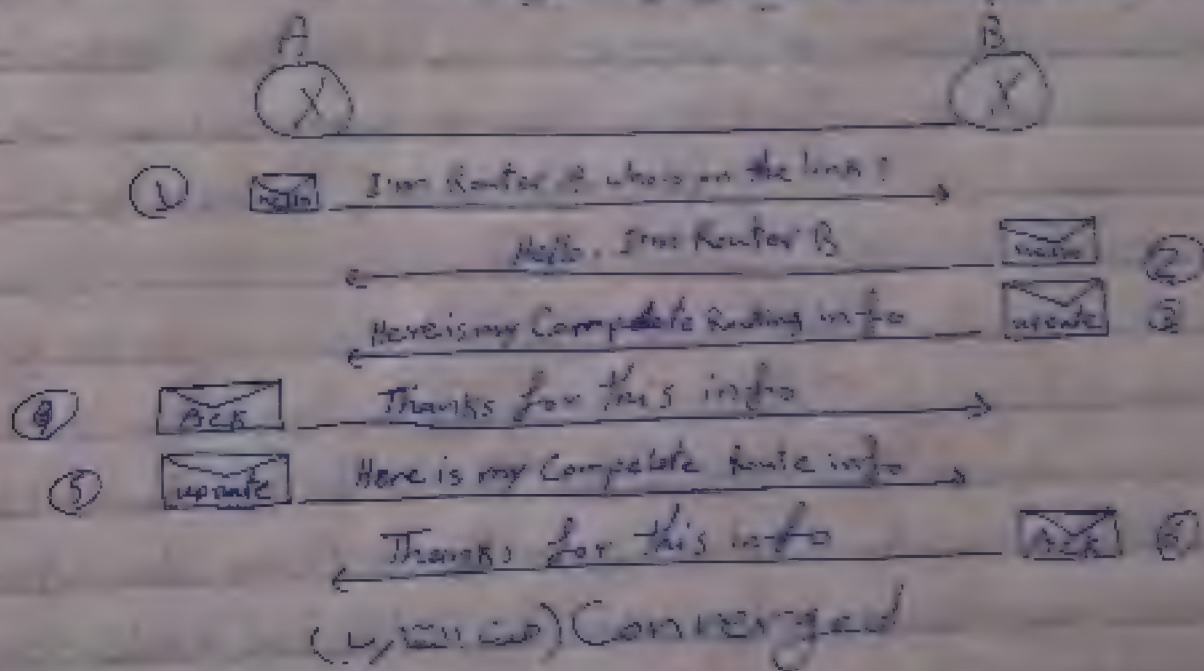 A B
X X
① Hello I'm Router A who is on the link?
Hello. I'm Router B Hello ②
Here is my Compelete Routing info update ③
④ ACK Thanks for this info
⑤ update Here is my Compelete Route info
Thanks for this info ACK ⑥
Converged